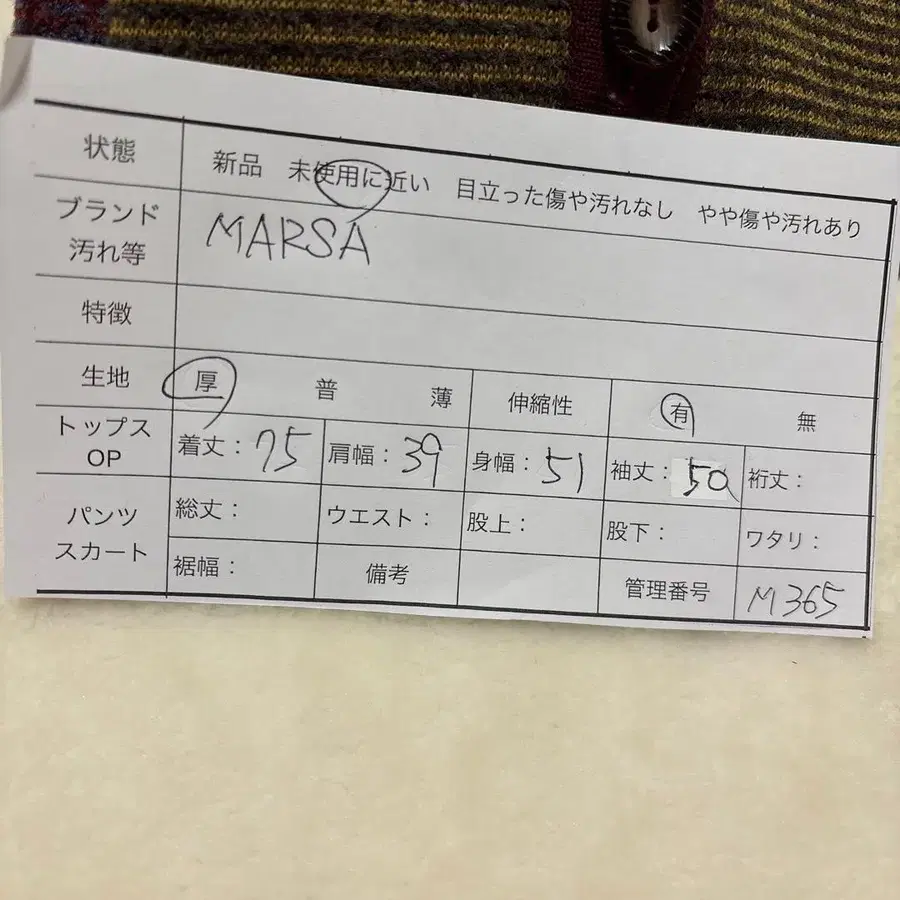 状態 新品 未使用に近い 目立った傷や汚れなし やや傷や汚れあり
ブランド
汚れ等
MARSA
特徴
生地 厚 普 薄 伸縮性 有 無
トップス
OP
着丈：75 肩幅：39 身幅：51 袖丈：50 裄丈：
パンツ
スカート
総丈： ウエスト： 股上： 股下： ワタリ：
裾幅： 備考 管理番号 M365